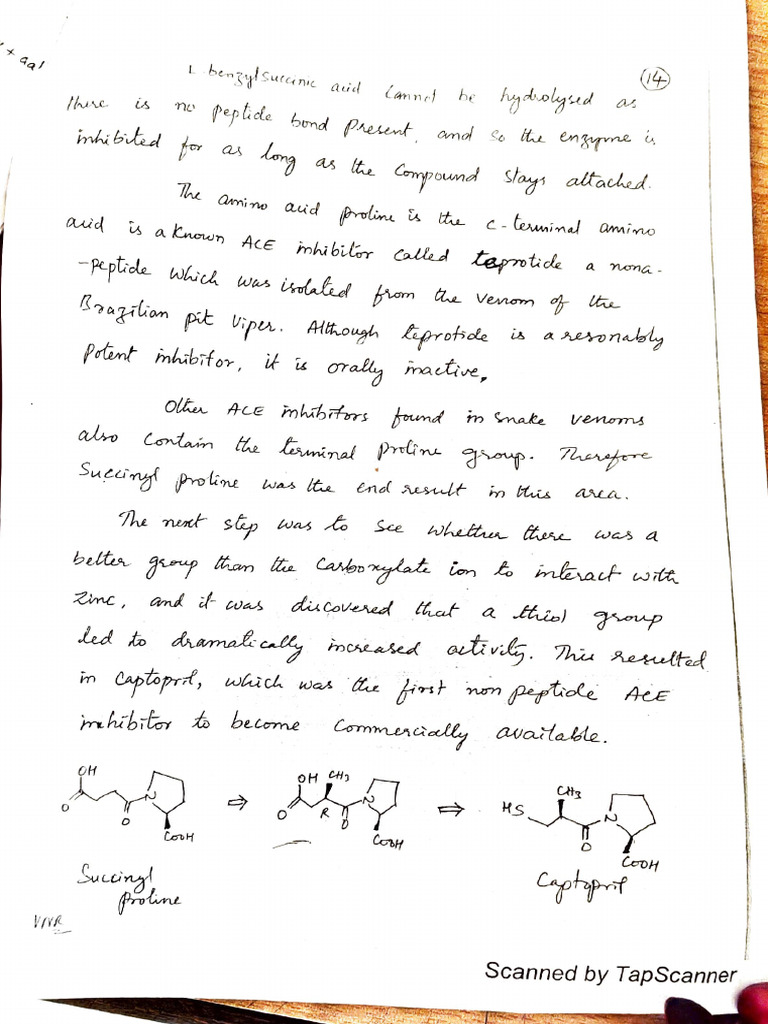 (14)
L-benzylsuccinic acid cannot be hydrolysed as
there is no peptide bond present, and so the enzyme is
inhibited for as long as the compound stays attached.
The amino acid proline is the c-terminal amino
acid is a known ACE inhibitor called teprotide a nona-
-peptide which was isolated from the venom of the
Brazilian pit viper. Although teprotide is a resonably
potent inhibitor, it is orally inactive.
Other ACE inhibitors found in snake venoms
also contain the terminal proline group. Therefore
Succinyl proline was the end result in this area.
The next step was to see whether there was a
better group than the carboxylate ion to interact with
zinc, and it was discovered that a thiol group
led to dramatically increased activity. This resulted
in captopril, which was the first non peptide ACE
inhibitor to become commercially available.
OH O O N COOH ⇒ OH CH3 O R O N COOH ⇒ HS CH3 O N COOH
Succinyl proline
Captopril
Scanned by TapScanner